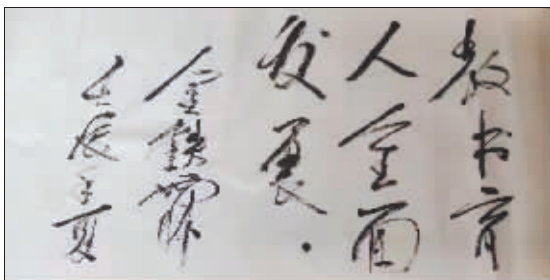 教书育
人全面
发展.
金铁霖
壬辰夏